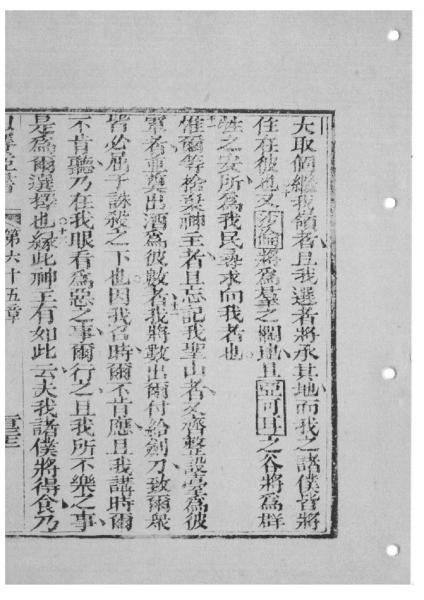 大取個繼我領者且我選者將承其地而我之諸僕皆將
住在彼也又沙倫將爲羣之欄場且亞可耳之谷將爲群
牲之安所爲我民尋求而我者也
十一
惟爾等捨棄神主者且忘記我聖山者又齊整設臺爲彼
軍者重奠出酒爲彼數者我將數出爾付給劍刀致爾衆
十二
皆必屈于誅殺之下也因我召時爾不肯應且我講時爾
不肯聽乃在我眼看爲惡之事爾行之且我所不樂之事
是爲爾選擇也緣此神主有如此云夫我諸僕將得食乃
十三
第六十五章